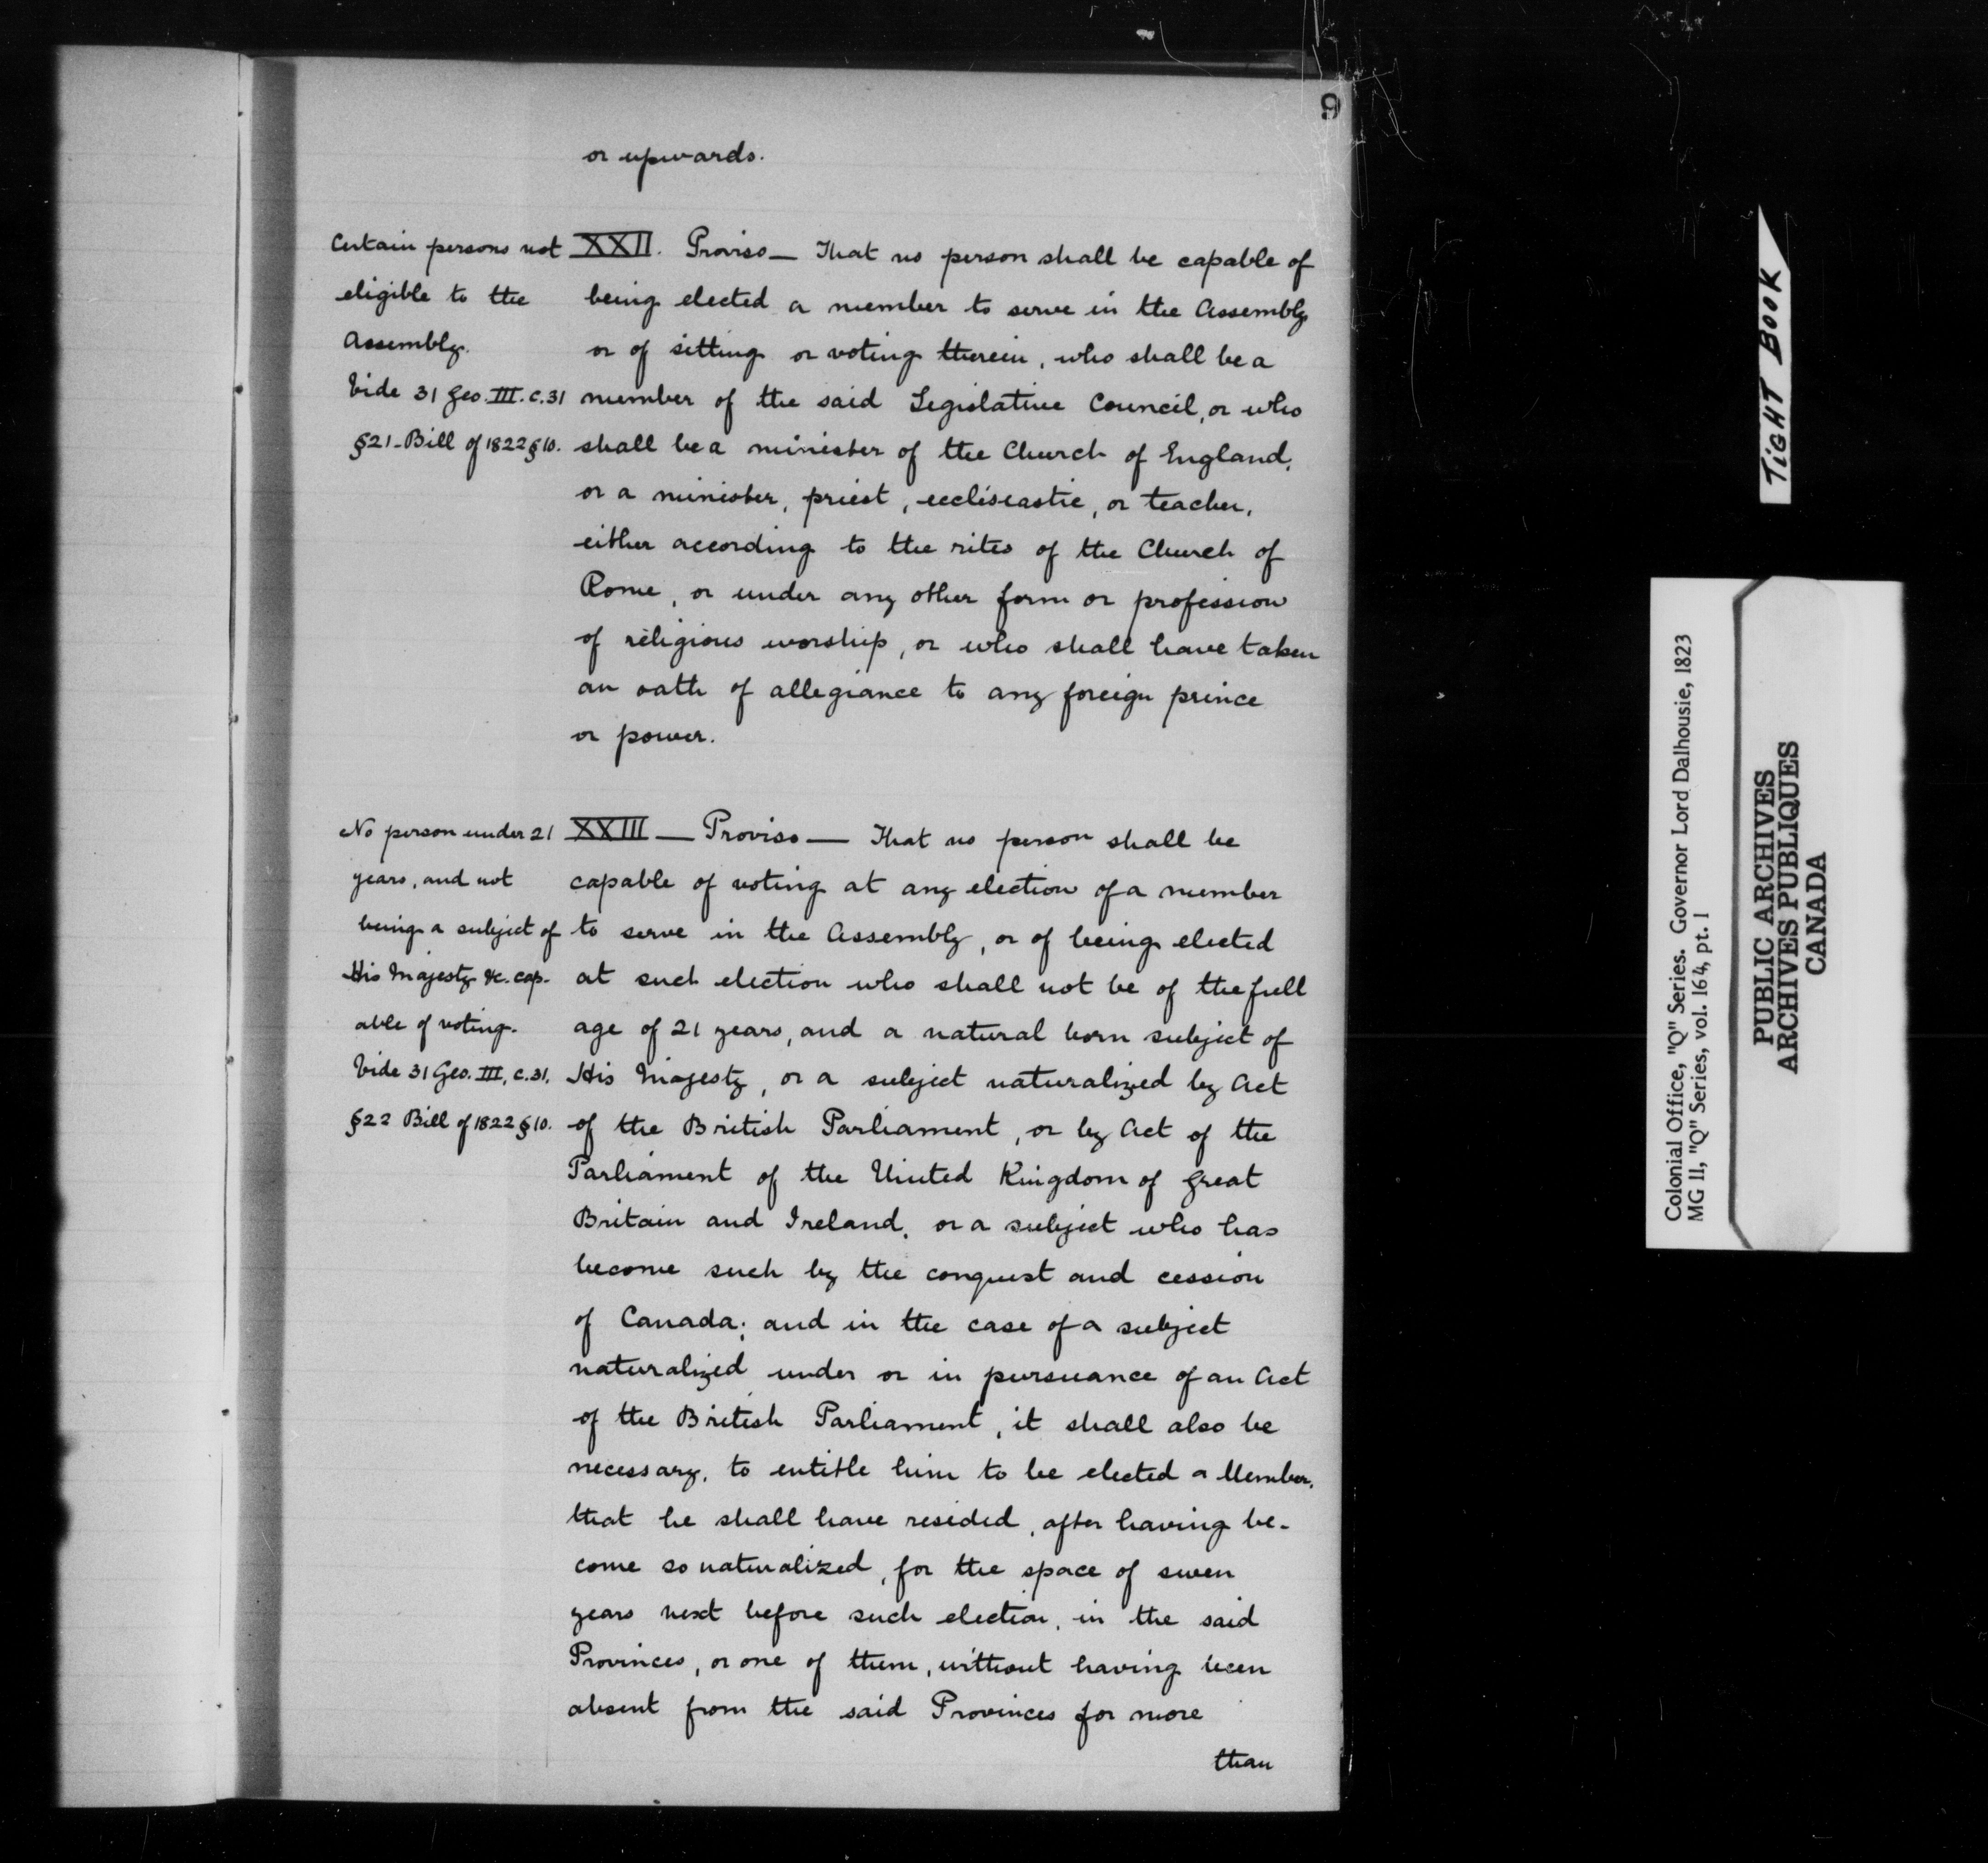 9
or upwards.
Certain persons not
eligible to the
Assembly.
Vide 31 Geo. III. c. 31
§21 - Bill of 1822 § 10.
XXII. Proviso — That no person shall be capable of
being elected a member to serve in the Assembly
or of sitting or voting therein, who shall be a
member of the said Legislative Council, or who
shall be a minister of the Church of England,
or a minister, priest, eccliseastic, or teacher,
either according to the rites of the Church of
Rome, or under any other form or profession
of religious worship, or who shall have taken
an oath of allegiance to any foreign prince
or power.
No person under 21
years, and not
being a subject of
His Majesty &c. cap-
able of voting.
Vide 31 Geo. III, c. 31.
§22 Bill of 1822 § 10.
XXIII — Proviso — That no person shall be
capable of voting at any election of a member
to serve in the Assembly, or of being elected
at such election who shall not be of the full
age of 21 years, and a natural born subject of
His Majesty, or a subject naturalized by Act
of the British Parliament, or by Act of the
Parliament of the United Kingdom of Great
Britain and Ireland, or a subject who has
become such by the conquest and cession
of Canada; and in the case of a subject
naturalized under or in pursuance of an Act
of the British Parliament, it shall also be
necessary, to entitle him to be elected a Member,
that he shall have resided, after having be-
come so naturalized, for the space of seven
years next before such election, in the said
Provinces, or one of them, without having been
absent from the said Provinces for more
than
TIGHT BOOK
Colonial Office, "Q" Series. Governor Lord Dalhousie, 1823
MG 11, "Q" Series, vol. 164, pt. 1
PUBLIC ARCHIVES
ARCHIVES PUBLIQUES
CANADA